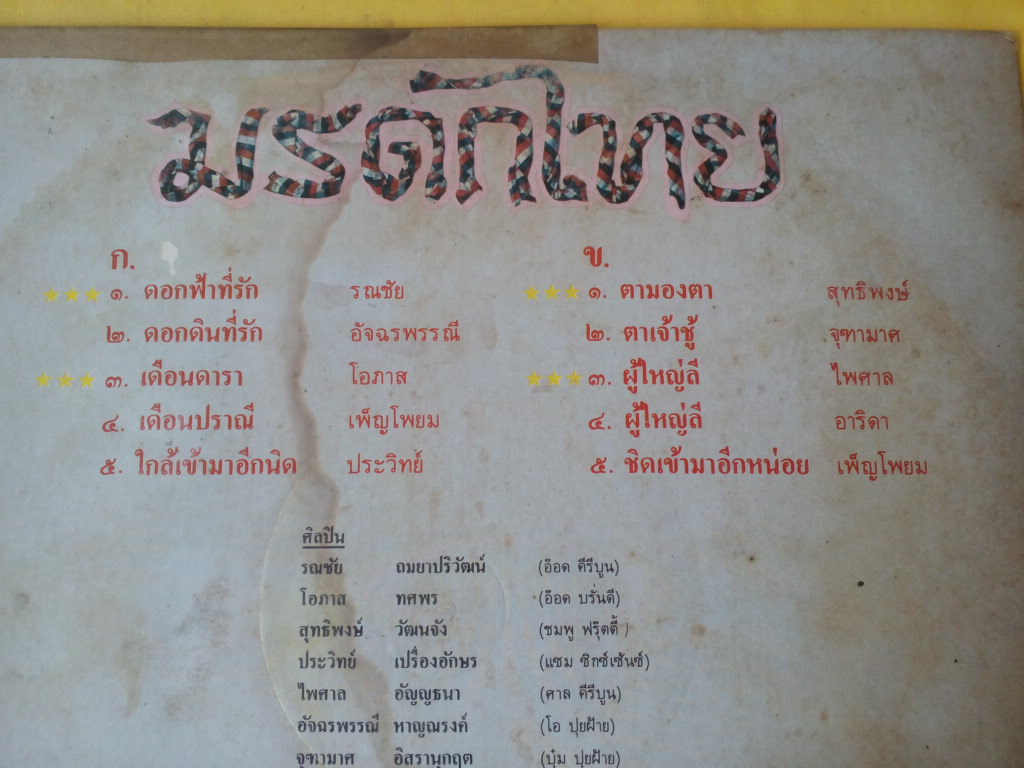 มรดกไทย
ก.
๑. ดอกฟ้าที่รัก รณชัย
๒. ดอกดินที่รัก อัจฉรพรรณี
๓. เดือนดารา โอภาส
๔. เดือนปราณี เพ็ญโพยม
๕. ใกล้เข้ามาอีกนิด ประวิทย์
ข.
๑. ตามองตา สุทธิพงษ์
๒. ตาเจ้าชู้ จุฑามาศ
๓. ผู้ใหญ่ลี ไพศาล
๔. ผู้ใหญ่ลี อาริดา
๕. ชิดเข้ามาอีกหน่อย เพ็ญโพยม
ศิลปิน
รณชัย ถมยาปริวัฒน์ (อ๊อด คีรีบูน)
โอภาส ทศพร (อ๊อด บรั่นดี)
สุทธิพงษ์ วัฒนจัง (ชมพู ฟรุ๊ตตี้)
ประวิทย์ เปรื่องอักษร (แซม ซิกซ์เซ้นซ์)
ไพศาล อัญญธนา (ศาล คีรีบูน)
อัจฉรพรรณี หาญณรงค์ (โอ ปุยฝ้าย)
จุฑามาศ อิสรานุกฤต (บุ๋ม ปุยฝ้าย)